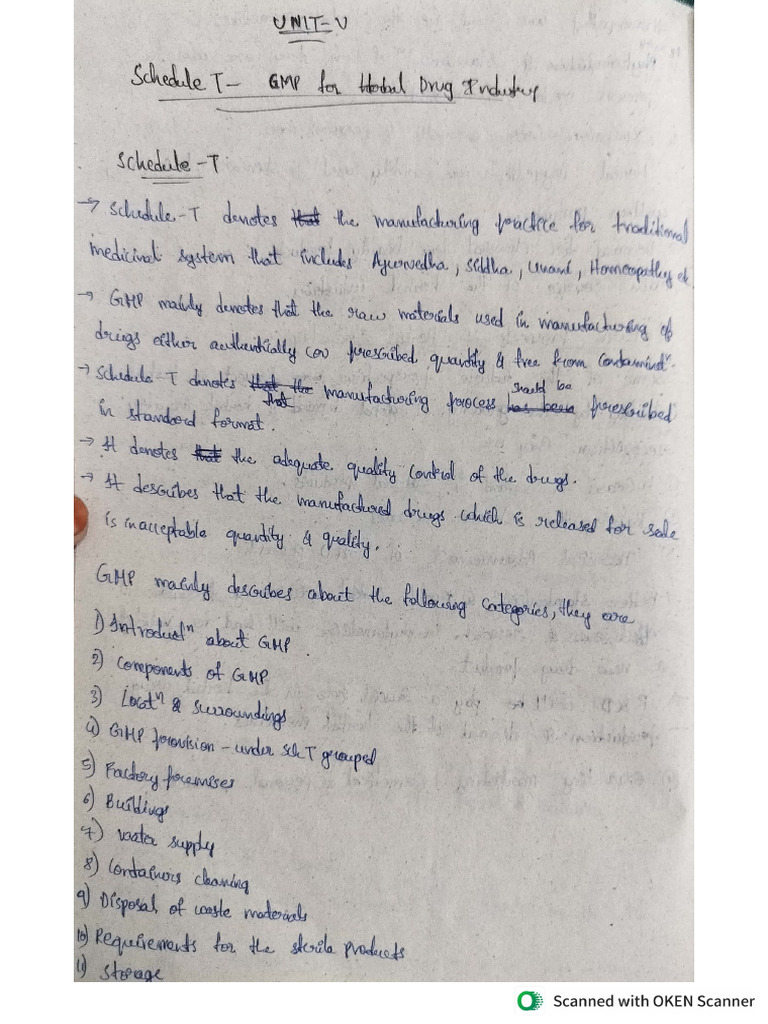 UNIT-V
Schedule T- GMP for Herbal Drug Industry
Schedule-T
→ Schedule-T denotes that the manufacturing practice for traditional
medicinal system that includes Ayurvedha, Siddha, Unani, Homeopathy et
→ GMP mainly denotes that the raw materials used in manufacturing of
drugs either authentically (or) prescribed quantity & free from contaminⁿ.
→ Schedule-T denotes that the that manufacturing process has been should be prescribed
in standard format.
→ It denotes that the adequate quality control of the drugs.
→ It describes that the manufactured drugs which is released for sale
is in acceptable quantity & quality.
GMP mainly describes about the following categories, they are
1) Introductⁿ about GMP.
2) Components of GMP
3) Locatⁿ & surroundings
4) GMP provision - under sch T grouped
5) Factory premises
6) Buildings
7) water supply
8) Containers cleaning
9) Disposal of waste materials
10) Requirements for the sterile products
11) Storage
Scanned with OKEN Scanner